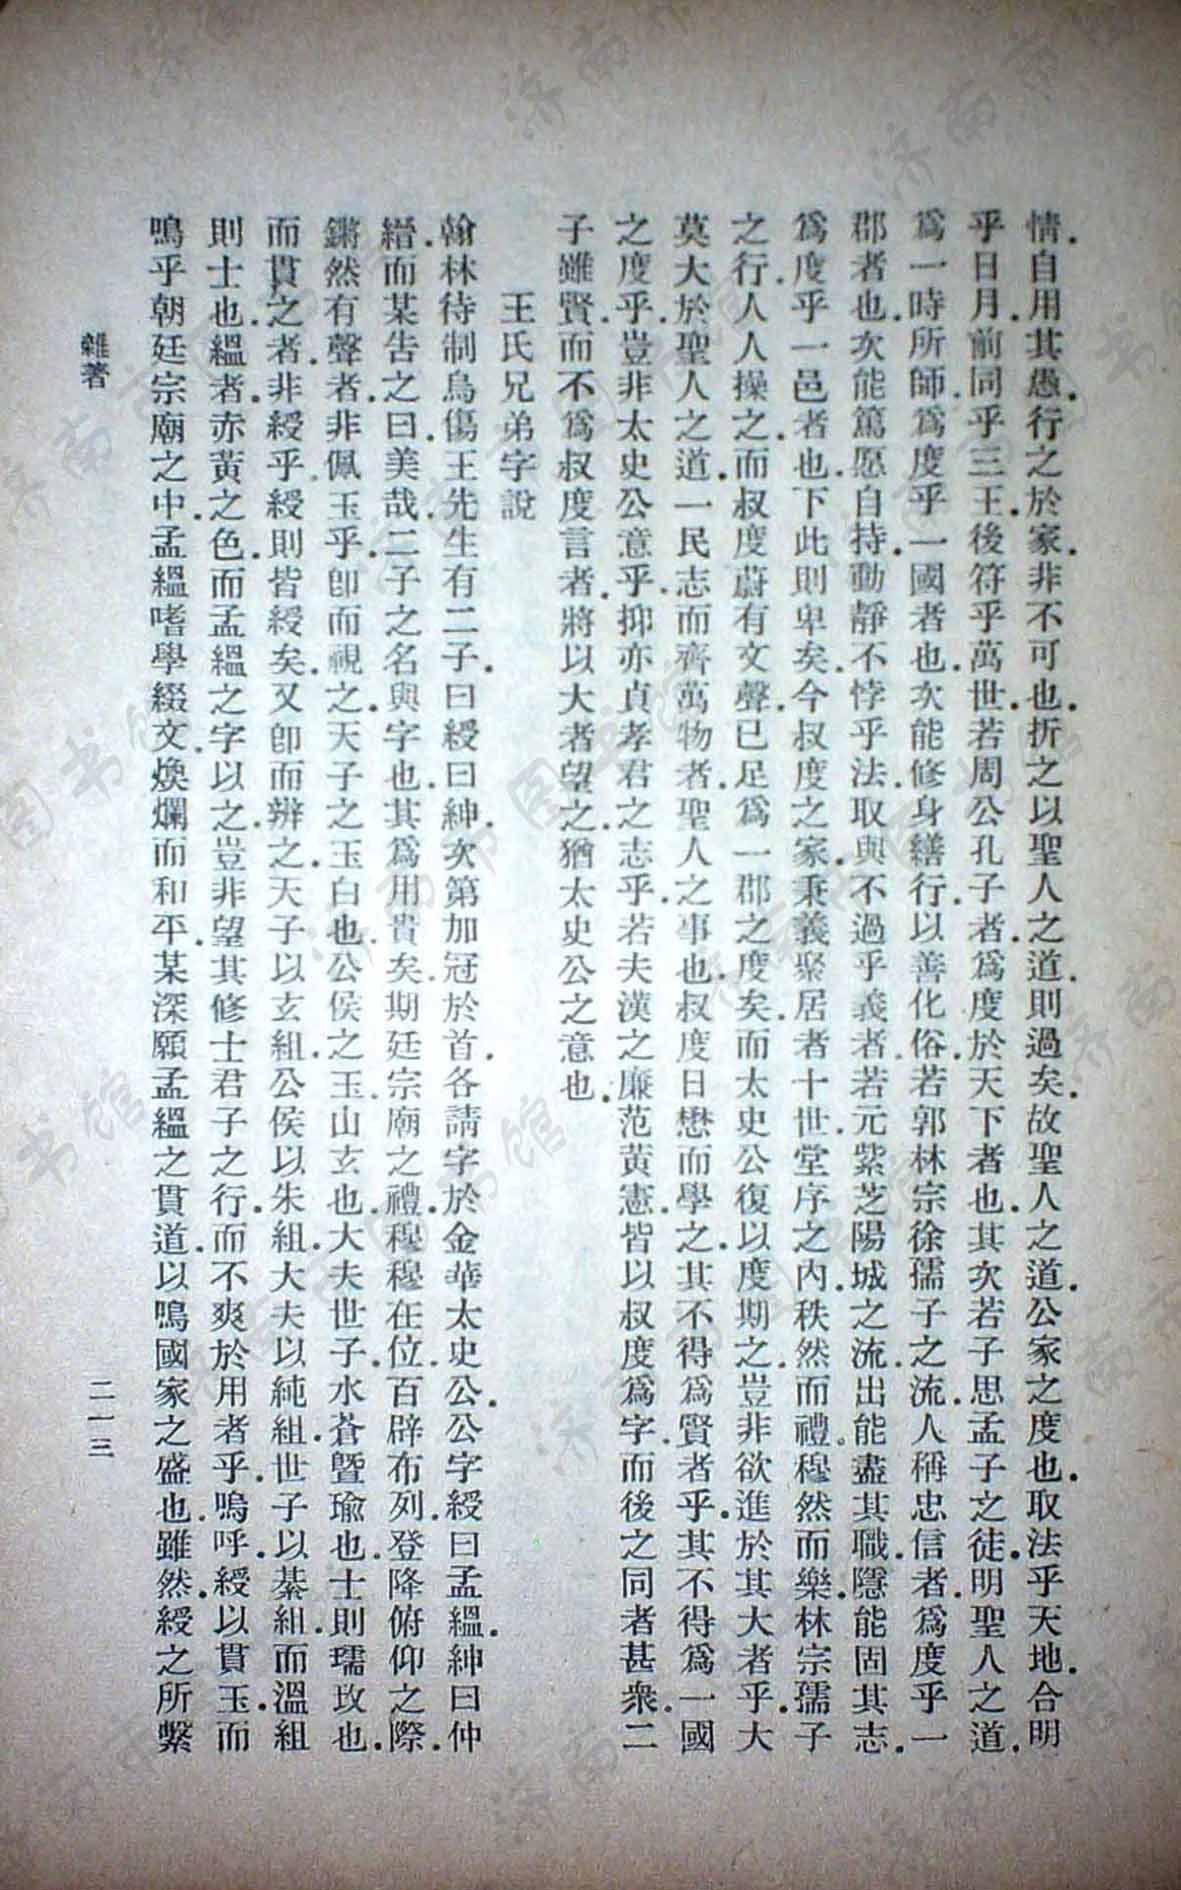 情．自用其愚．行之於家．非不可也．折之以聖人之道．則過矣．故聖人之道．公家之度也．取法乎天地．合明
乎日月．前同乎三王．後符乎萬世．若周公孔子者．爲度於天下者也．其次若子思孟子之徒．明聖人之道．
爲一時所師．爲度乎一國者也．次能修身繕行．以善化俗．若郭林宗徐孺子之流．人稱忠信者．爲度乎一
郡者也．次能篤愿自持．動靜不悖乎法．取與不過乎義者．若元紫芝陽城之流．出能盡其職．隱能固其志．
爲度乎一邑者也．下此則卑矣．今叔度之家．秉義聚居者十世．堂序之內．秩然而禮。穆然而樂．林宗孺子
之行．人人操之．而叔度蔚有文聲．已足爲一郡之度矣．而太史公復以度期之．豈非欲進於其大者乎．大
莫大於聖人之道．一民志而齊萬物者．聖人之事也．叔度日懋而學之．其不得爲賢者乎．其不得爲一國
之度乎．豈非太史公意乎．抑亦貞孝君之志乎．若夫漢之廉范黃憲．皆以叔度爲字．而後之同者甚衆．二
子雖賢．而不爲叔度言者．將以大者望之．猶太史公之意也．
王氏兄弟字說
翰林待制烏傷王先生有二子．曰綬曰紳．次第加冠於首．各請字於金華太史公．公字綬曰孟縕．紳曰仲
縉．而某告之曰．美哉．二子之名與字也．其爲用貴矣．期廷宗廟之禮．穆穆在位．百辟布列．登降俯仰之際．
鏘然有聲者．非佩玉乎．卽而視之．天子之玉白也．公侯之玉．山玄也．大夫世子．水蒼暨瑜也．士則瓀玫也．
而貫之者．非綬乎．綬則皆綬矣．又卽而辨之．天子以玄組．公侯以朱組．大夫以純組．世子以綦組．而溫組
則士也．縕者．赤黃之色．而孟縕之字以之．豈非望其修士君子之行．而不爽於用者乎．嗚呼．綬以貫玉．而
鳴乎朝廷宗廟之中．孟縕嗜學綴文．煥爛而和平．某深願孟縕之貫道．以鳴國家之盛也．雖然．綬之所繫
雜著
二一三